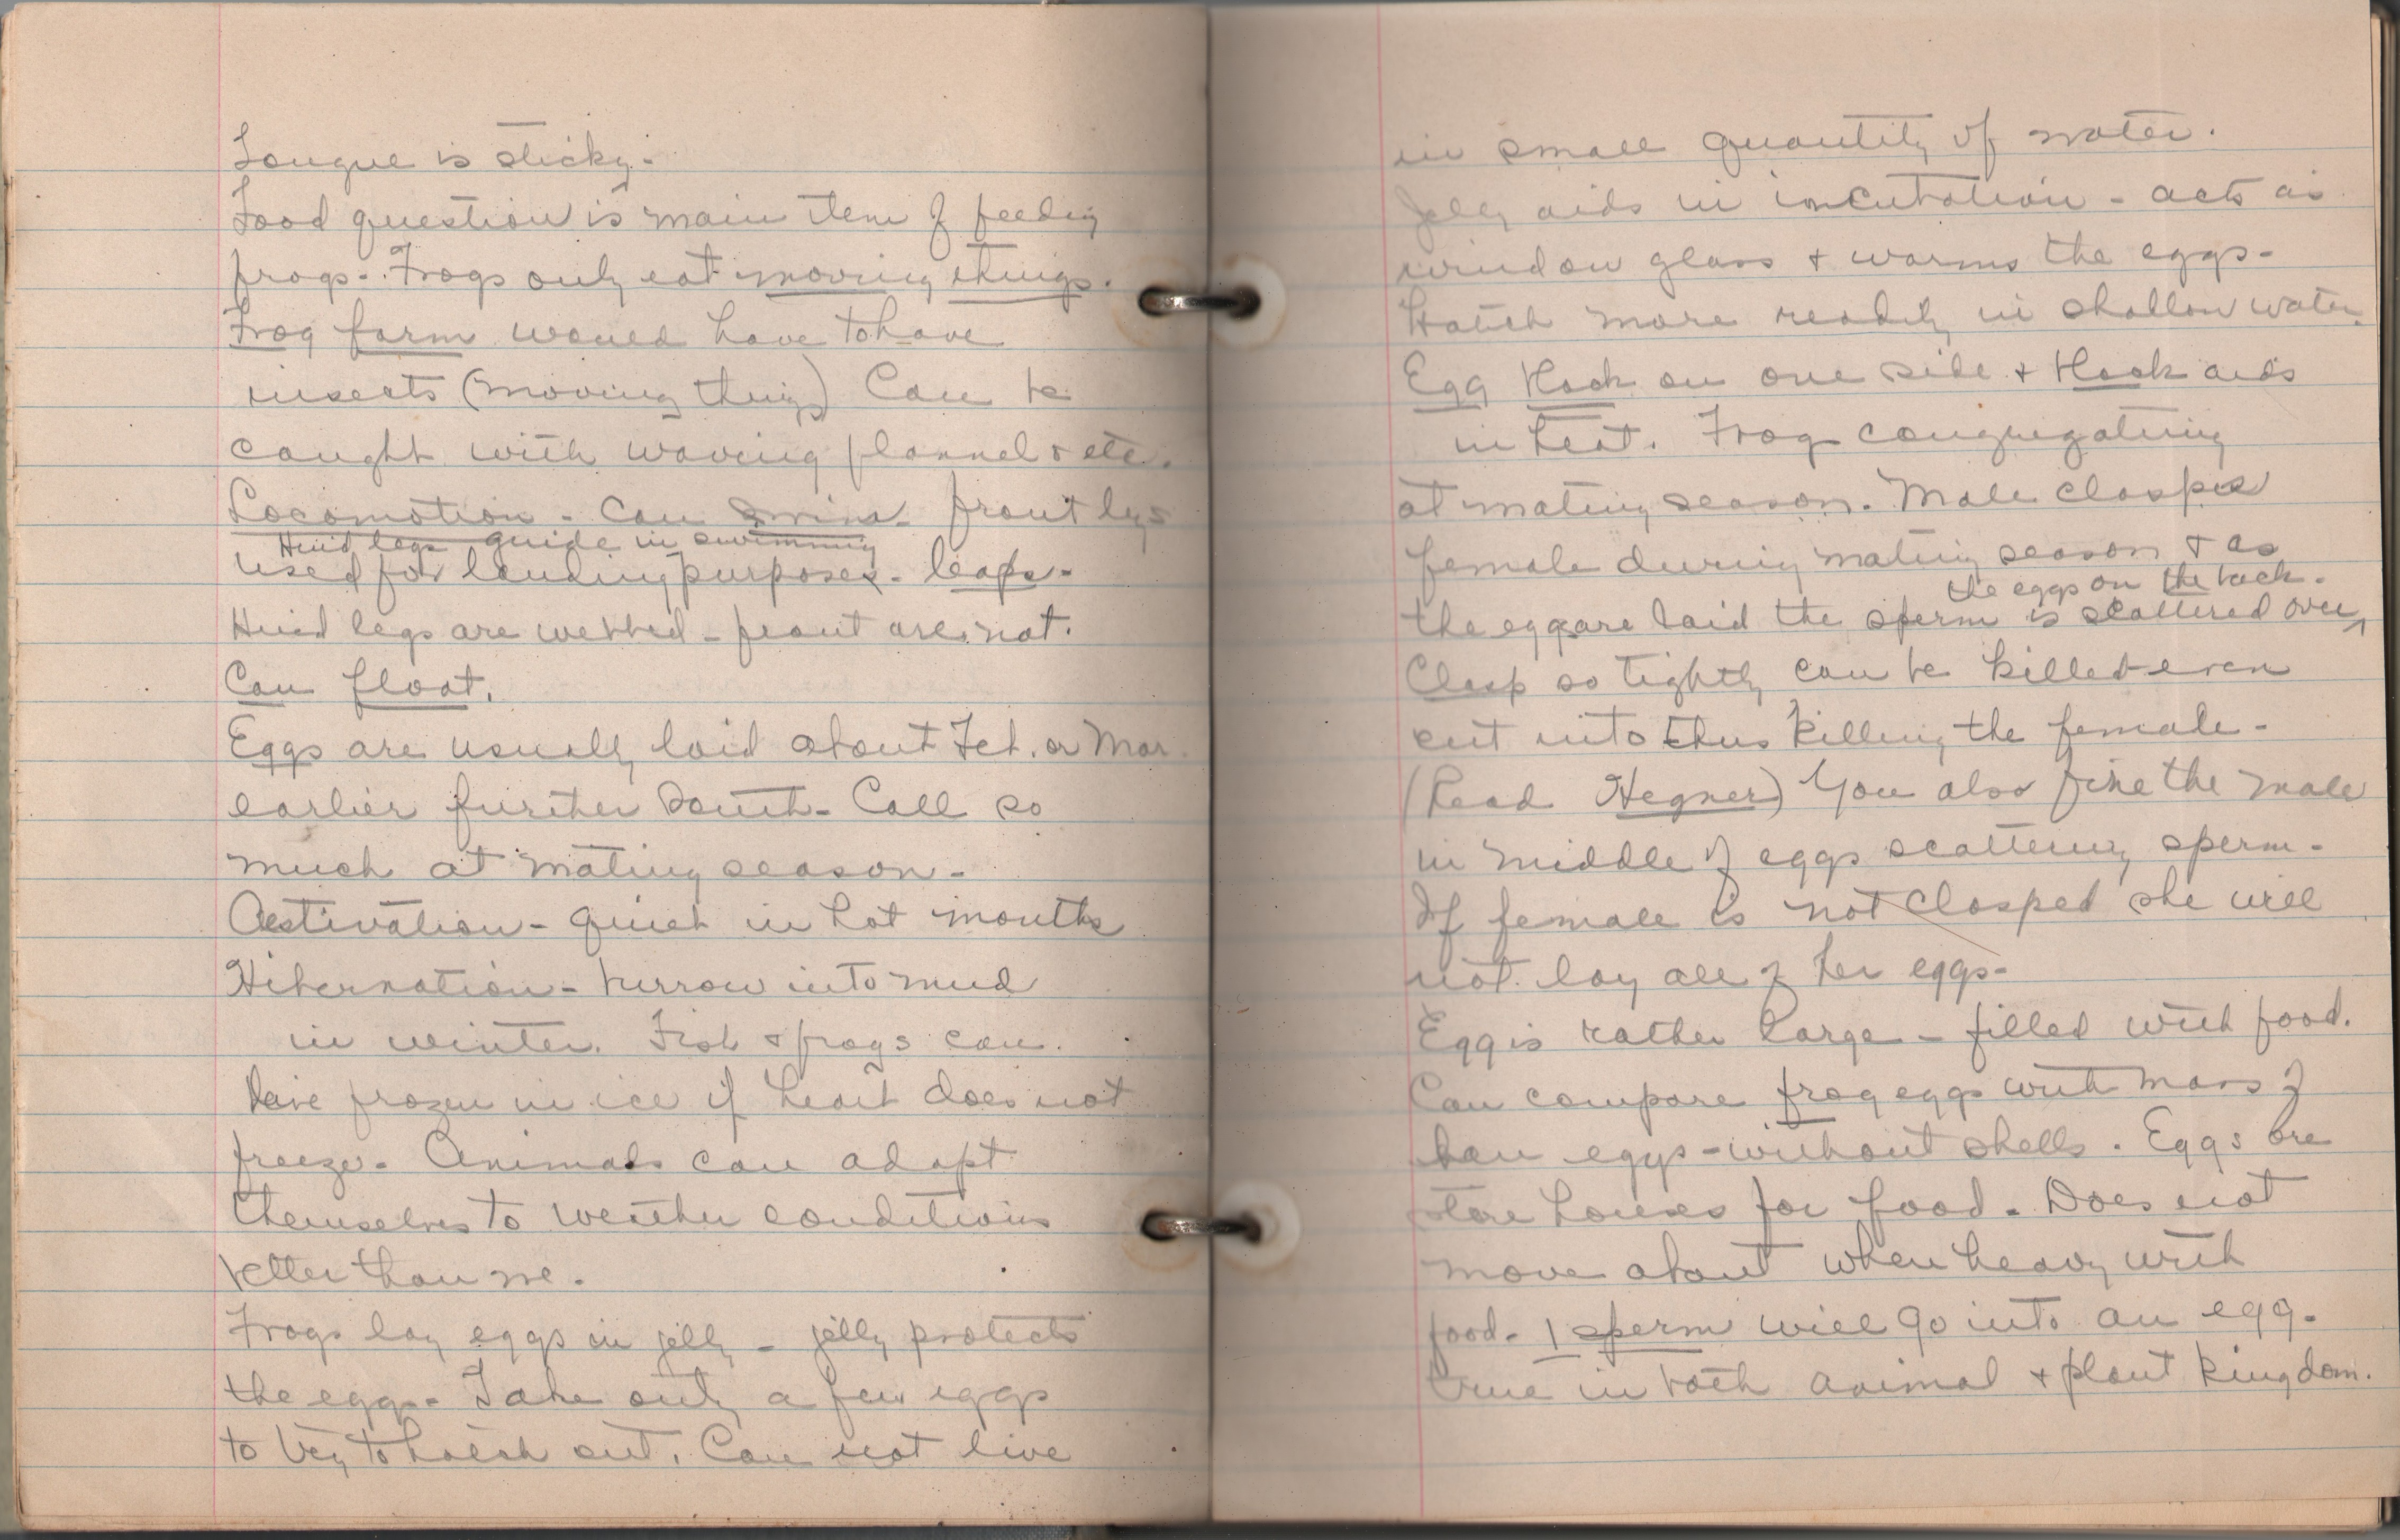 Tongue is sticky.
Food question is main item of feeding
frogs. Frogs only eat moving things.
Frog farm would have to have
insects (moving things) Can be
caught with waving flannel & etc.
Locomotion - Can swim. front legs
Hind legs guide in swimming
used for landing purposes. leaps.
Hind legs are webbed - front are not.
Can float.
Eggs are usually laid about Feb. or Mar.
earlier further South. Call so
much at mating season.
Aestivation - quiet in hot months
Hibernation - burrow into mud
in winter. Fish & frogs can
live frozen in ice if heart does not
freeze. Animals can adapt
themselves to weather conditions
better than we.
Frogs lay eggs in jelly - jelly protects
the eggs. Take only a few eggs
to try to hatch out. Can not live
in small quantity of water.
Jelly aids in incubation - acts as
window glass & warms the eggs.
Hatch more readily in shallow water.
Egg black on one side & black aids
in heat. Frogs congregating
at mating season. Male clasps
female during mating season & as
the eggs on the back.
the eggs are laid the sperm is scattered over
Clasp so tightly can be killed even
cut into thus killing the female.
(Read Hegner) You also fine the male
in middle of eggs scattering sperm.
If female is not clasped she will
not lay all of her eggs.
Egg is rather large - filled with food.
Can compare frog eggs with mass of
hen eggs - without shells. Eggs are
store houses for food. Does not
move about when heavy with
food. 1 sperm will go into an egg.
true in both animal & plant kingdom.